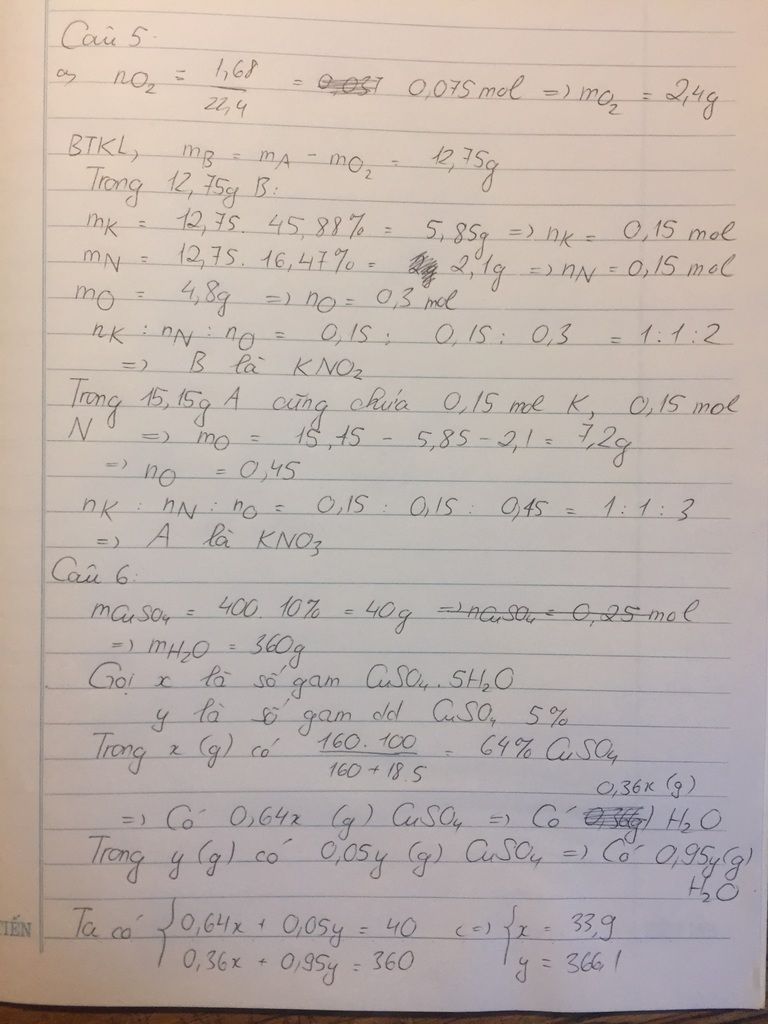 Câu 5.
a) nO2 = 1,68/22,4 = 0,037 0,075 mol => mO2 = 2,4g
BTKL, mB = mA - mO2 = 12,75g
Trong 12,75g B:
mK = 12,75. 45,88% = 5,85g => nK = 0,15 mol
mN = 12,75. 16,47% = 2,1g => nN = 0,15 mol
mO = 4,8g => nO = 0,3 mol
nK : nN : nO = 0,15 : 0,15 : 0,3 = 1:1:2
=> B là KNO2
Trong 15,15g A cũng chứa 0,15 mol K, 0,15 mol
N => mO = 15,15 - 5,85 - 2,1 = 7,2g
=> nO = 0,45
nK : nN : nO = 0,15 : 0,15 : 0,45 = 1:1:3
=> A là KNO3
Câu 6:
mCuSO4 = 400. 10% = 40g => nCuSO4 = 0,25 mol
=> mH2O = 360g
Gọi x là số gam CuSO4.5H2O
y là số gam dd CuSO4 5%
Trong x (g) có 160.100/160+18.5 = 64% CuSO4
0,36x (g)
=> Có 0,64x (g) CuSO4 => Có 0,36(g) H2O
Trong y (g) có 0,05y (g) CuSO4 => Có 0,95y(g)
H2O
TIẾN
Ta có { 0,64x + 0,05y = 40 <=> { x = 33,9
0,36x + 0,95y = 360 y = 366,1